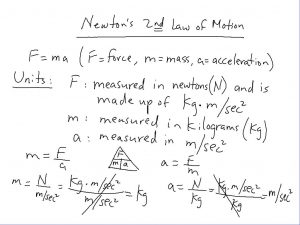 Newton's 2nd Law of Motion
F = ma (F = force, m = mass, a = acceleration)
Units: F: measured in newtons (N) and is
made up of Kg · m/sec²
m: measured in Kilograms (Kg)
a: measured in m/sec²
m = F/a
F
m a
a = F/m
m = N / m/sec² = Kg · m/sec² / m/sec² = Kg
a = N/Kg = Kg · m/sec² / Kg = m/sec²